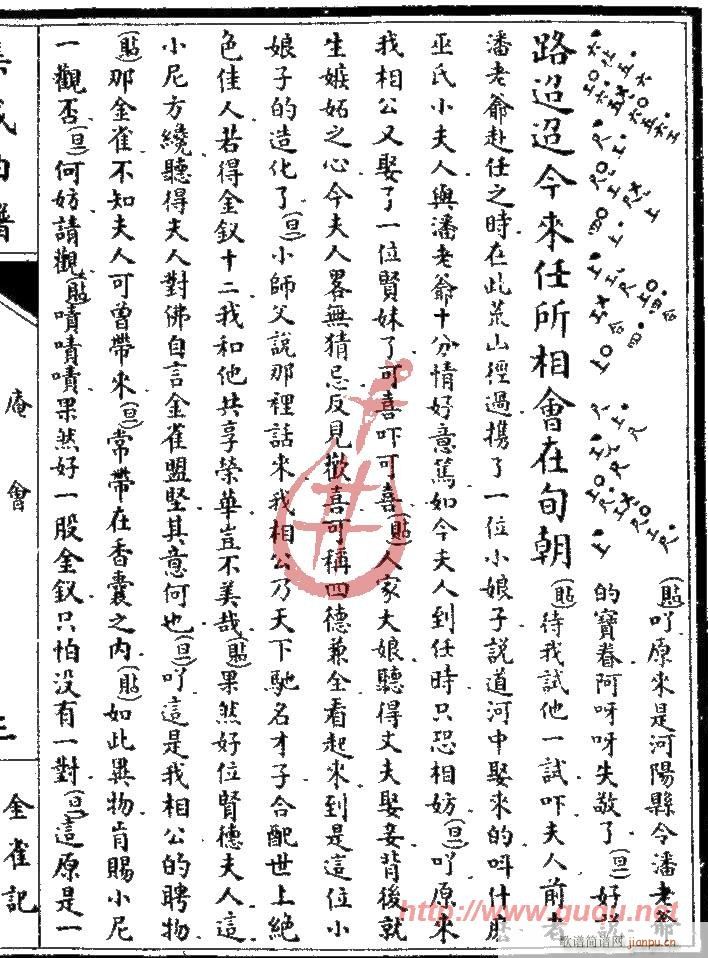 路迢迢今來任所相會在旬朝
(貼)吖原來是河陽縣令潘老爺
的寶眷阿呀呀失敬了(旦)好說
(貼)待我試他一試吓夫人前者
潘老爺赴任之時在此荒山徑過携了一位小娘子説道河中娶來的呌什麽
巫氏小夫人與潘老爺十分情好意篤如今夫人到任時只恐相妨(旦)吖原來
我相公又娶了一位賢妹了可喜吓可喜(貼)人家大娘聽得丈夫娶妾背後就
生嫉妬之心今夫人畧無猜忌反見歡喜可稱四德兼全看起來到是這位小
娘子的造化了(旦)小師父説那裡話來我相公乃天下馳名才子合配世上絕
色佳人若得金釵十二我和他共享榮華豈不美哉(貼)果然好位賢德夫人這
小尼方纔聽得夫人對佛自言金雀盟堅其意何也(旦)吖這是我相公的聘物
(貼)那金雀不知夫人可曾帶來(旦)常帶在香囊之內(貼)如此異物肯賜小尼
一觀否(旦)何妨請觀(貼)嘖嘖嘖果然好一股金釵只怕没有一對(旦)這原是一
集成曲譜
庵會
金雀記
http://www.guqu.net
歌谱简谱网
jianpu.cn